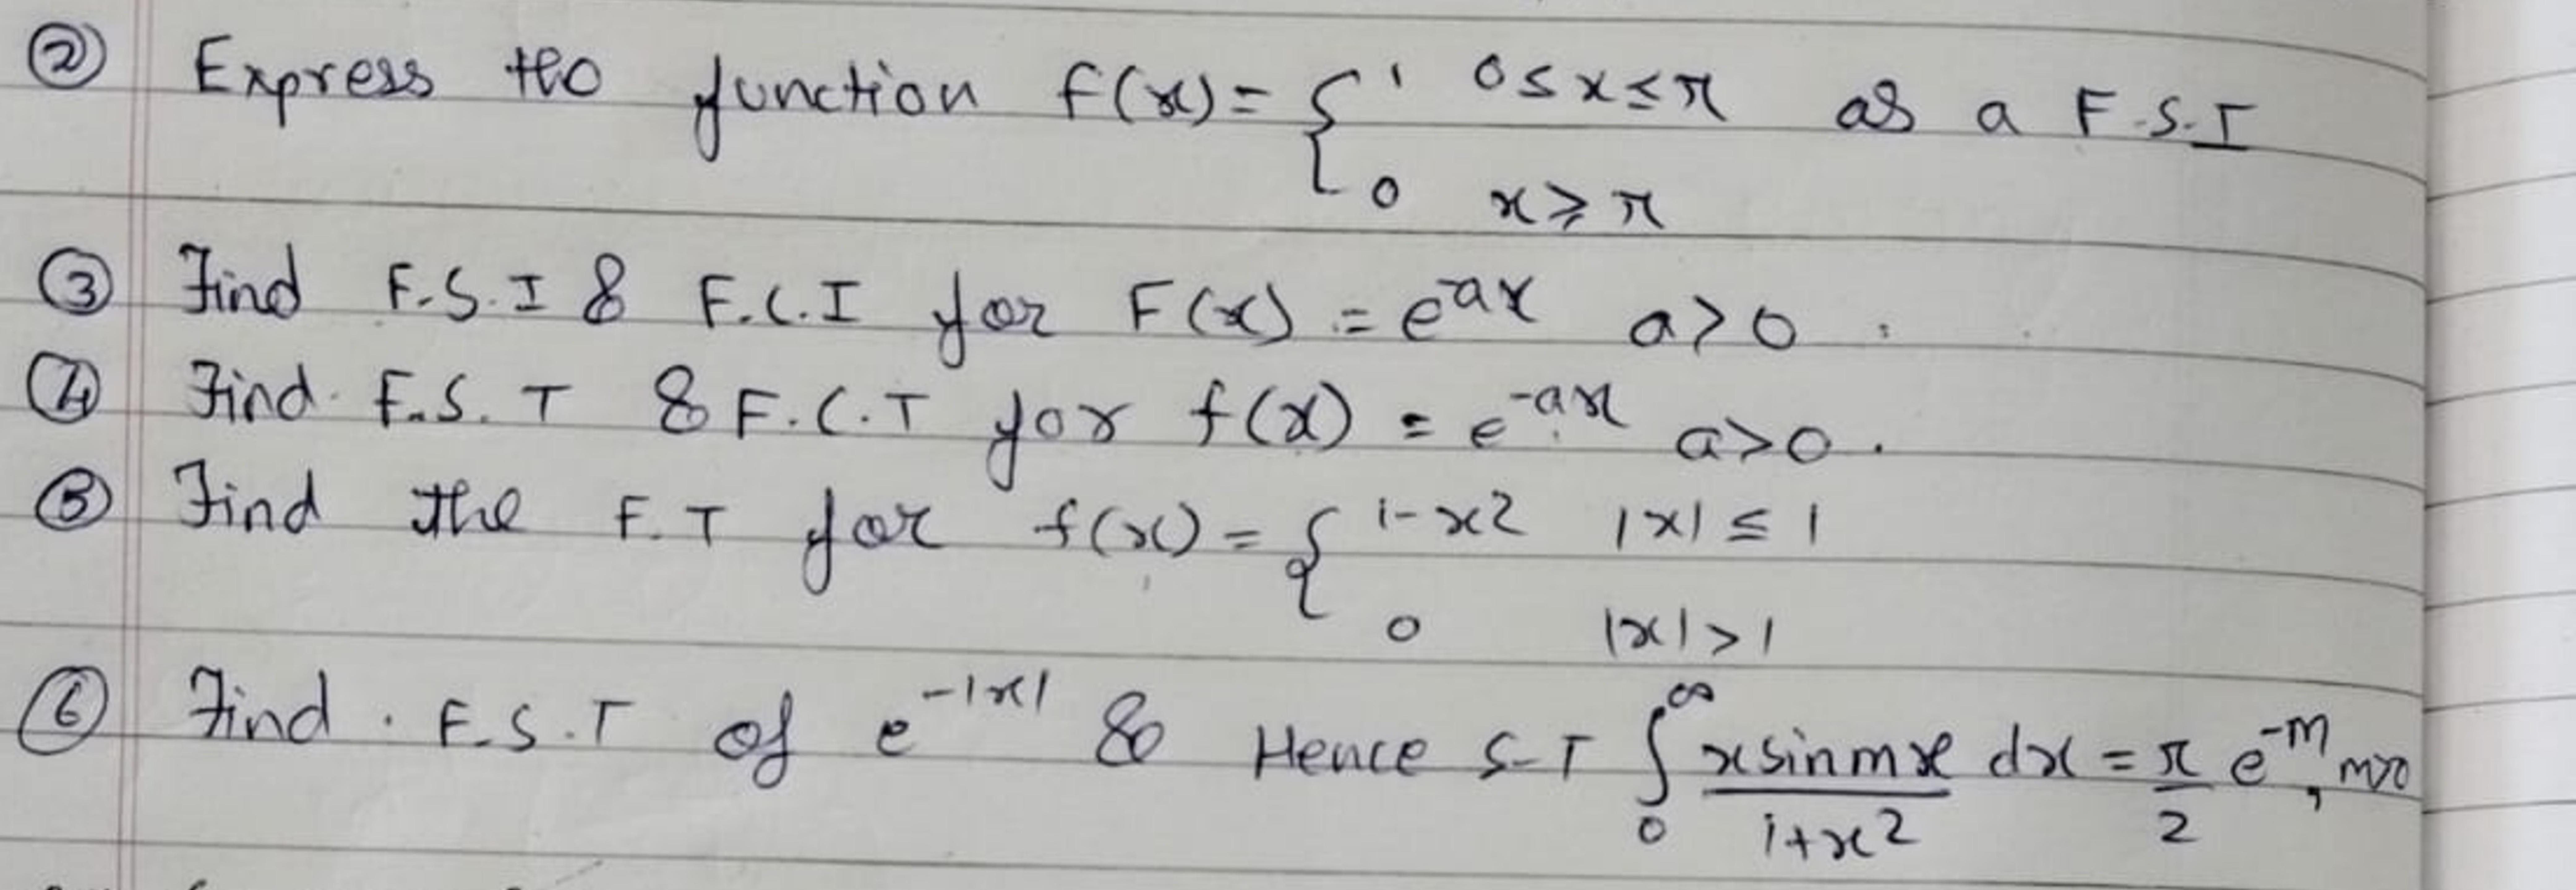 ② Express the function f(x) = { 1 0 ≤ x ≤ π as a F.S.I
0 x ⩾ π
③ Find F.S.I & F.C.I for F(x) = e^-ax a>0.
④ Find F.S.T & F.C.T for f(x) = e^-ax a>0.
⑤ Find the F.T for f(x) = { 1-x² |x| ≤ 1
0 |x| > 1
⑥ Find . F.S.T of e^-|x| & Hence S-T ∫₀^∞ x sin mx / 1+x² dx = π/2 e^-m, m>0